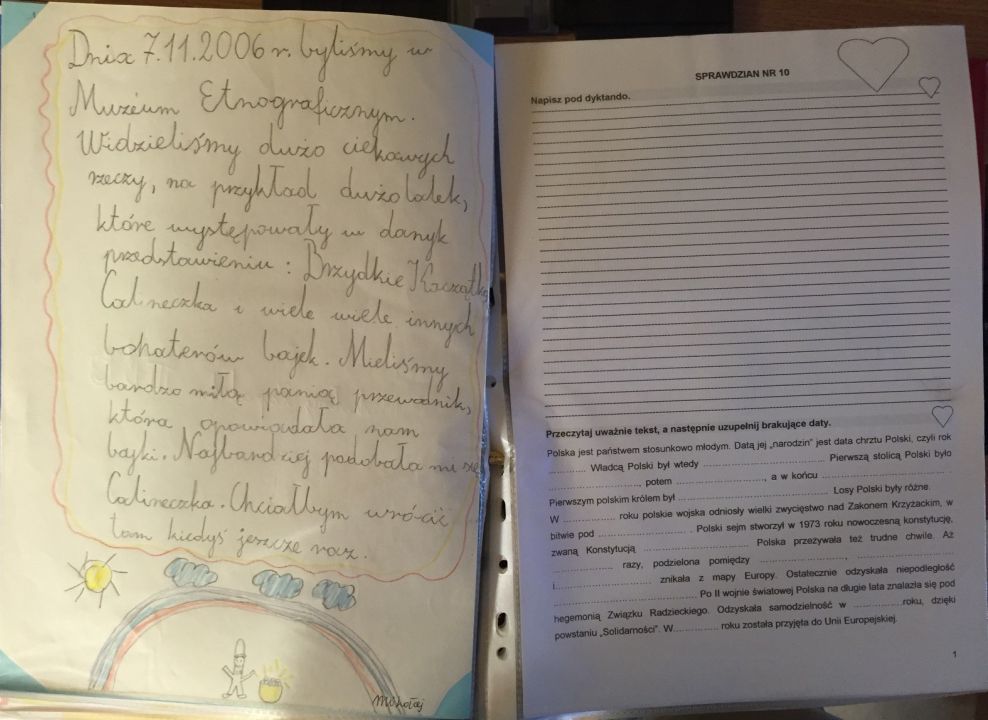 Dnia 7.11.2006 r. byliśmy w
Muzeum Etnograficznym.
Widzieliśmy dużo ciekawych
rzeczy, na przykład dużo lalek,
które występowały w danyk
przedstawieniu: Brzydkie Kaczątko
Calineczka i wiele wiele innych
bohaterów bajek. Mieliśmy
bardzo miłą panią przewodnik,
która opowiadała nam
bajki. Najbardziej podobała mi się
Calineczka. Chciałbym wrócić
tam kiedyś jeszcze raz.
Mikołaj
SPRAWDZIAN NR 10
Napisz pod dyktando.
Przeczytaj uważnie tekst, a następnie uzupełnij brakujące daty.
Polska jest państwem stosunkowo młodym. Datą jej „narodzin" jest data chrztu Polski, czyli rok
............ Władcą Polski był wtedy .............................. Pierwszą stolicą Polski było
......................, potem ......................, a w końcu ......................
Pierwszym polskim królem był ........................................ Losy Polski były różne.
W .............. roku polskie wojska odniosły wielki zwycięstwo nad Zakonem Krzyżackim, w
bitwie pod .............................. Polski sejm stworzył w 1973 roku nowoczesną konstytucję,
zwaną Konstytucją .......................... Polska przeżywała też trudne chwile. Aż
................ razy, podzielona pomiędzy ......................, ......................
i......................... znikała z mapy Europy. Ostatecznie odzyskała niepodległość
.................................... Po II wojnie światowej Polska na długie lata znalazła się pod
hegemonią Związku Radzieckiego. Odzyskała samodzielność w ..............roku, dzięki
powstaniu „Solidarności". W.............. roku została przyjęta do Unii Europejskiej.
1